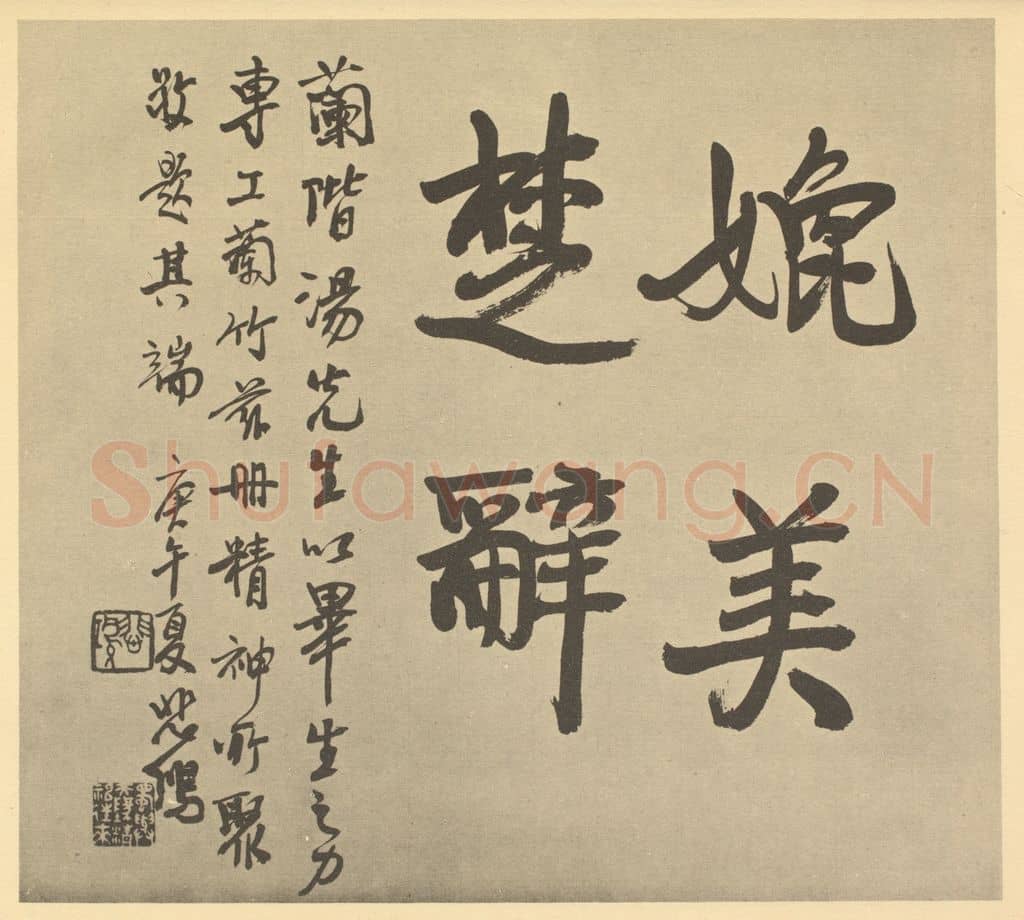 媲美
楚辭
蘭階湯先生以畢生之力
專工蘭竹茲冊精神所聚
敬題其端
庚午夏悲鴻
Shufawang.CN